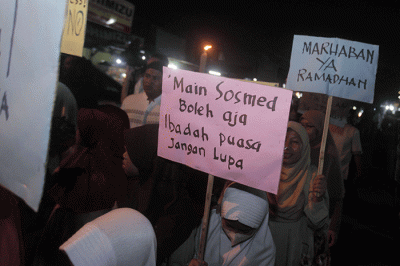 SHIMIZU
NO
"Main Sosmed
Boleh aja
Ibadah puasa
Jangan Lupa
MARHABAN
YA
RAMADHAN